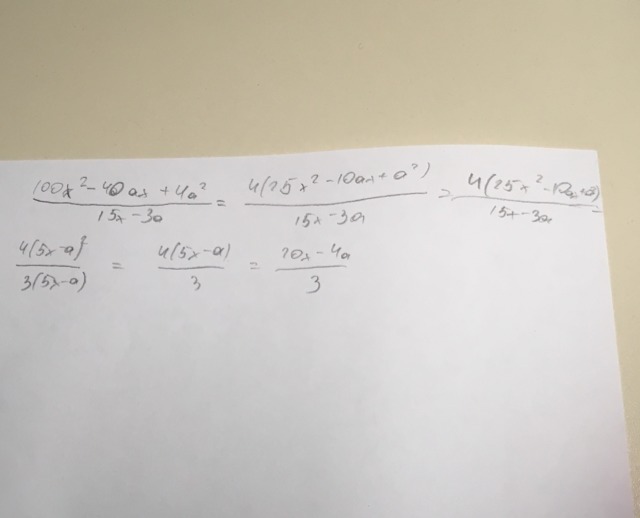 (100x² - 40ax + 4a²)/(15x - 3a) = 4(25x² - 10ax + a²)/(15x - 3a) = 4(25x² - 10ax + a²)/(15x - 3a) =
4(5x - a)²/3(5x - a) = 4(5x - a)/3 = (20x - 4a)/3